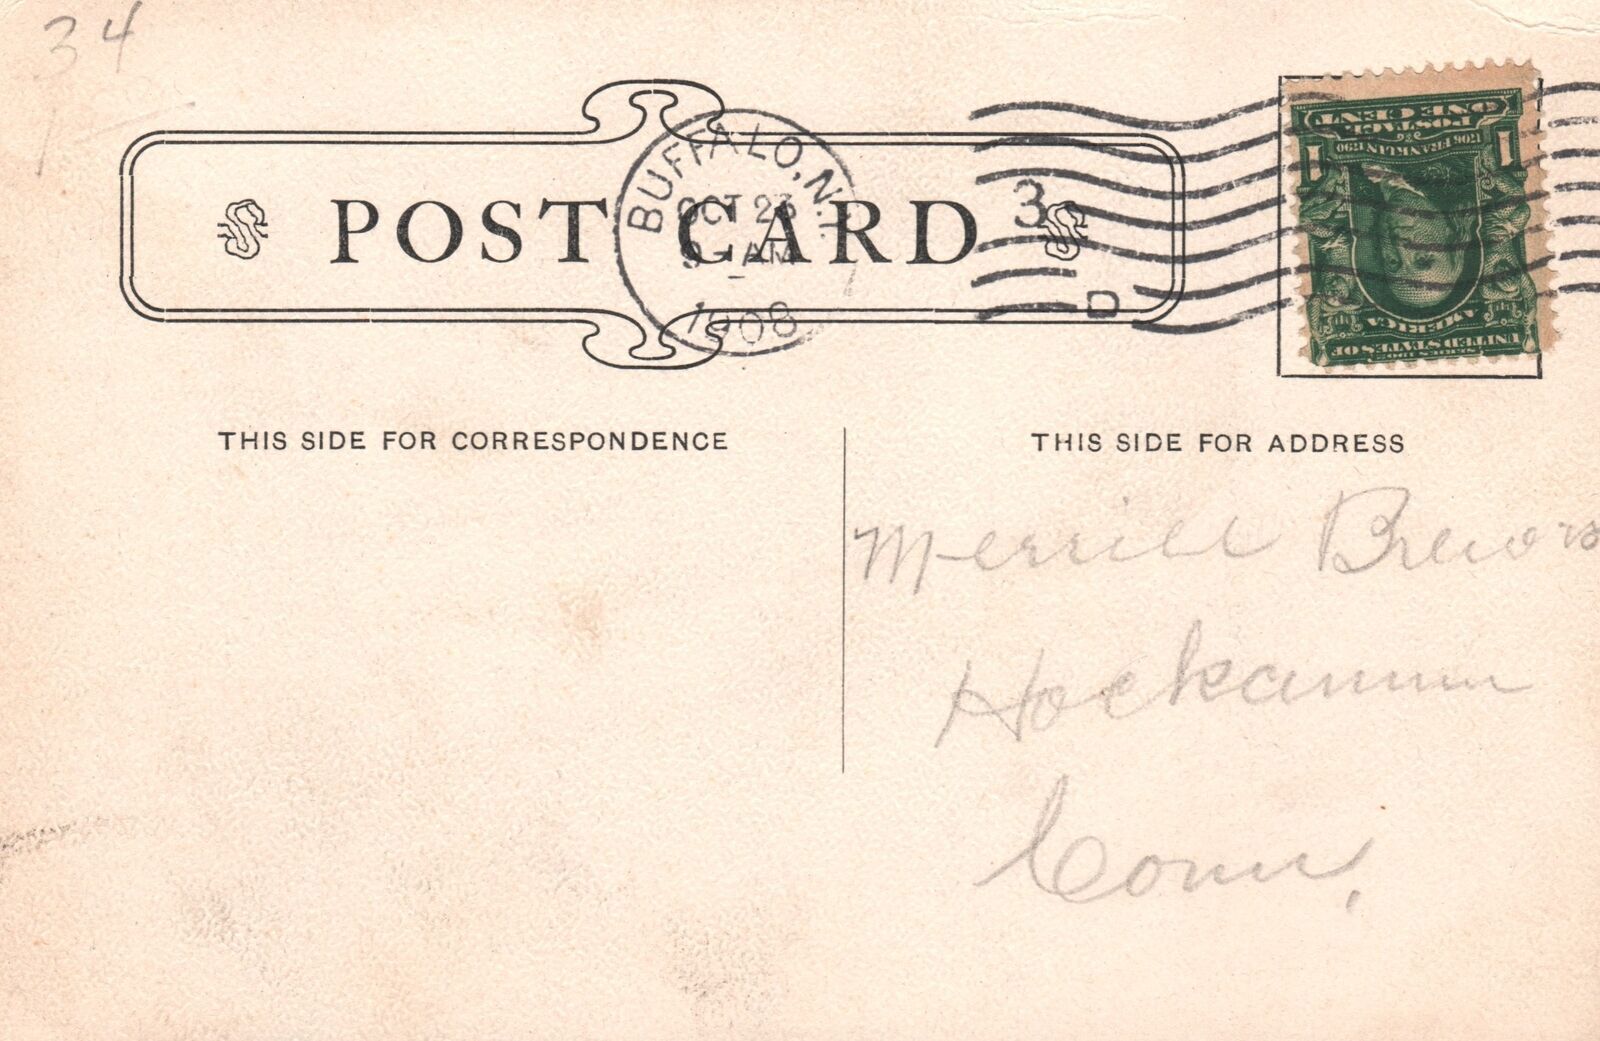 34
1
BUFFALO, N.Y.
OCT 23
9 - AM
1908
3
D
POST CARD
ONE CENT
POSTAGE
1706 FRANKLIN 1790
1 1
AMERICA
UNITED STATES OF
SERIES 1902
THIS SIDE FOR CORRESPONDENCE
THIS SIDE FOR ADDRESS
Merrill
Hockanum
Conn.